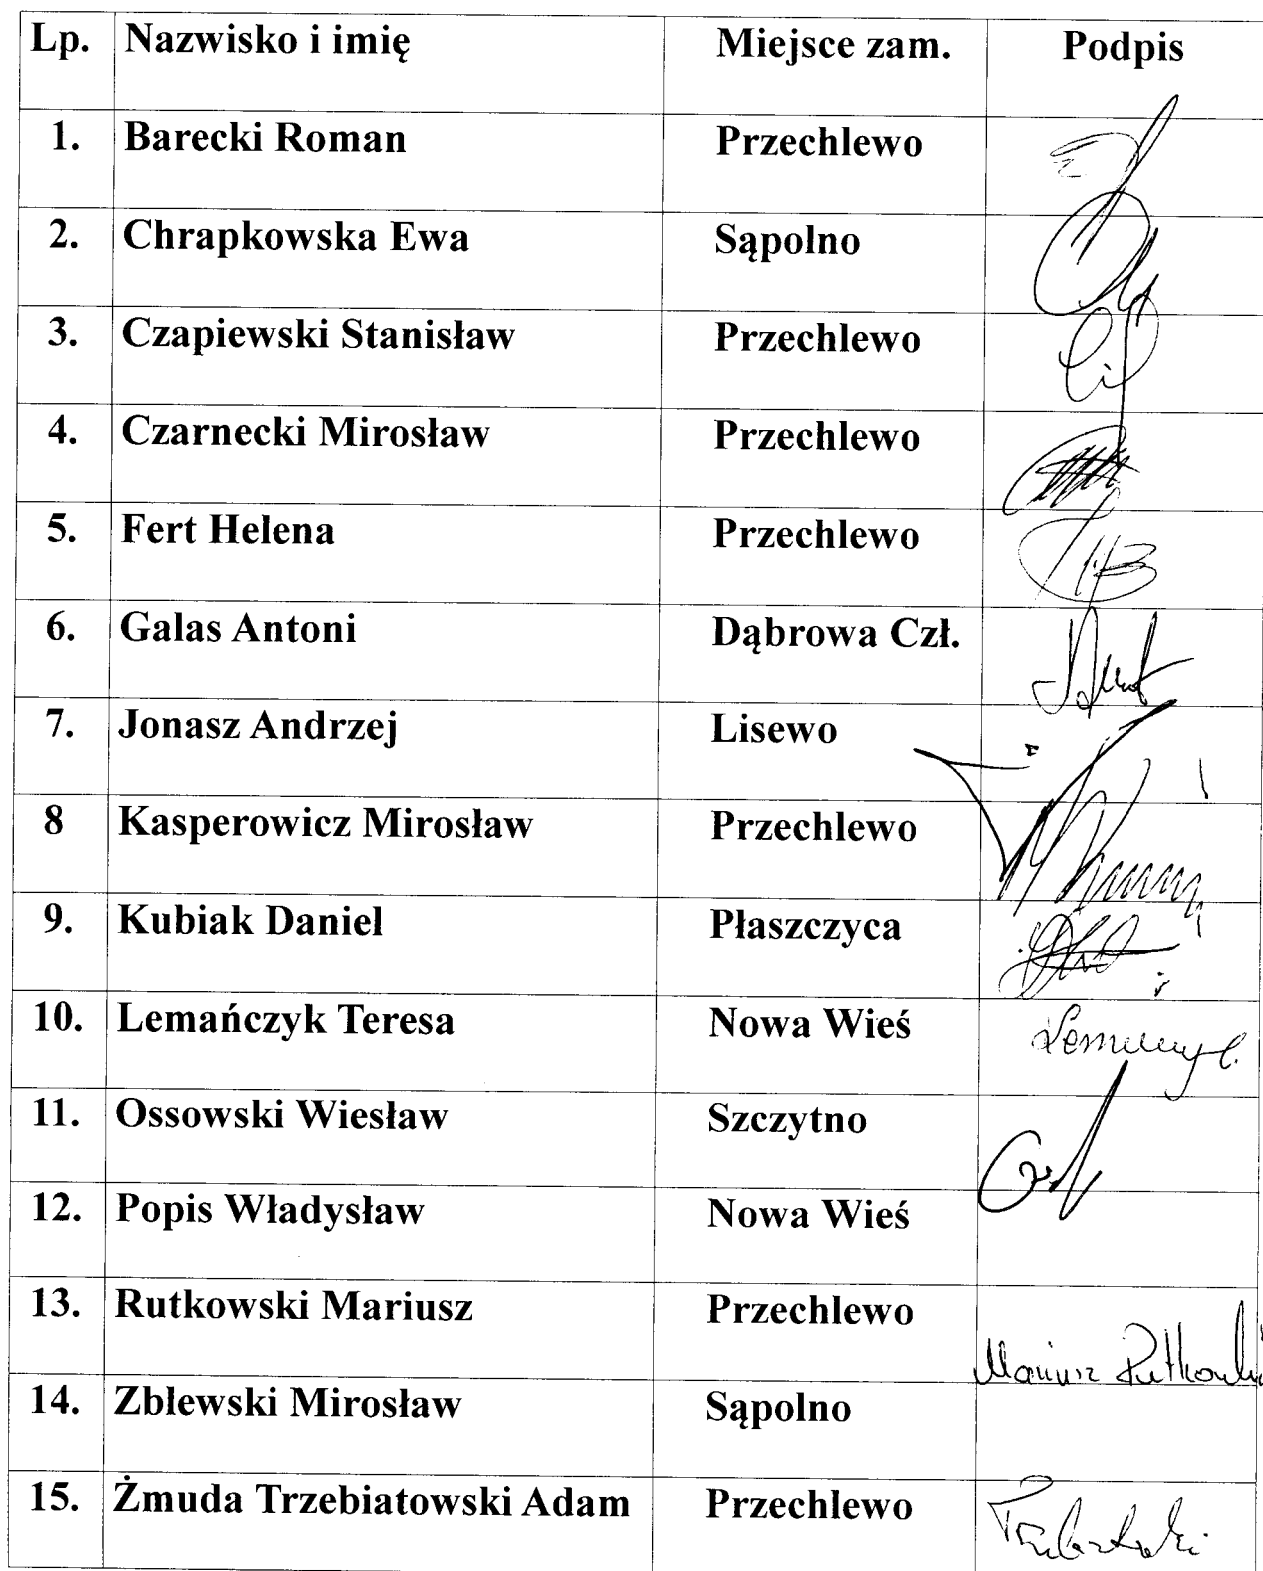 Lp. Nazwisko i imię Miejsce zam. Podpis
1. Barecki Roman Przechlewo
2. Chrapkowska Ewa Sąpolno
3. Czapiewski Stanisław Przechlewo
4. Czarnecki Mirosław Przechlewo
5. Fert Helena Przechlewo
6. Galas Antoni Dąbrowa Czł.
7. Jonasz Andrzej Lisewo
8 Kasperowicz Mirosław Przechlewo
9. Kubiak Daniel Płaszczyca
10. Lemańczyk Teresa Nowa Wieś
11. Ossowski Wiesław Szczytno
12. Popis Władysław Nowa Wieś
13. Rutkowski Mariusz Przechlewo Mariusz Rutkowski
14. Zblewski Mirosław Sąpolno
15. Żmuda Trzebiatowski Adam Przechlewo